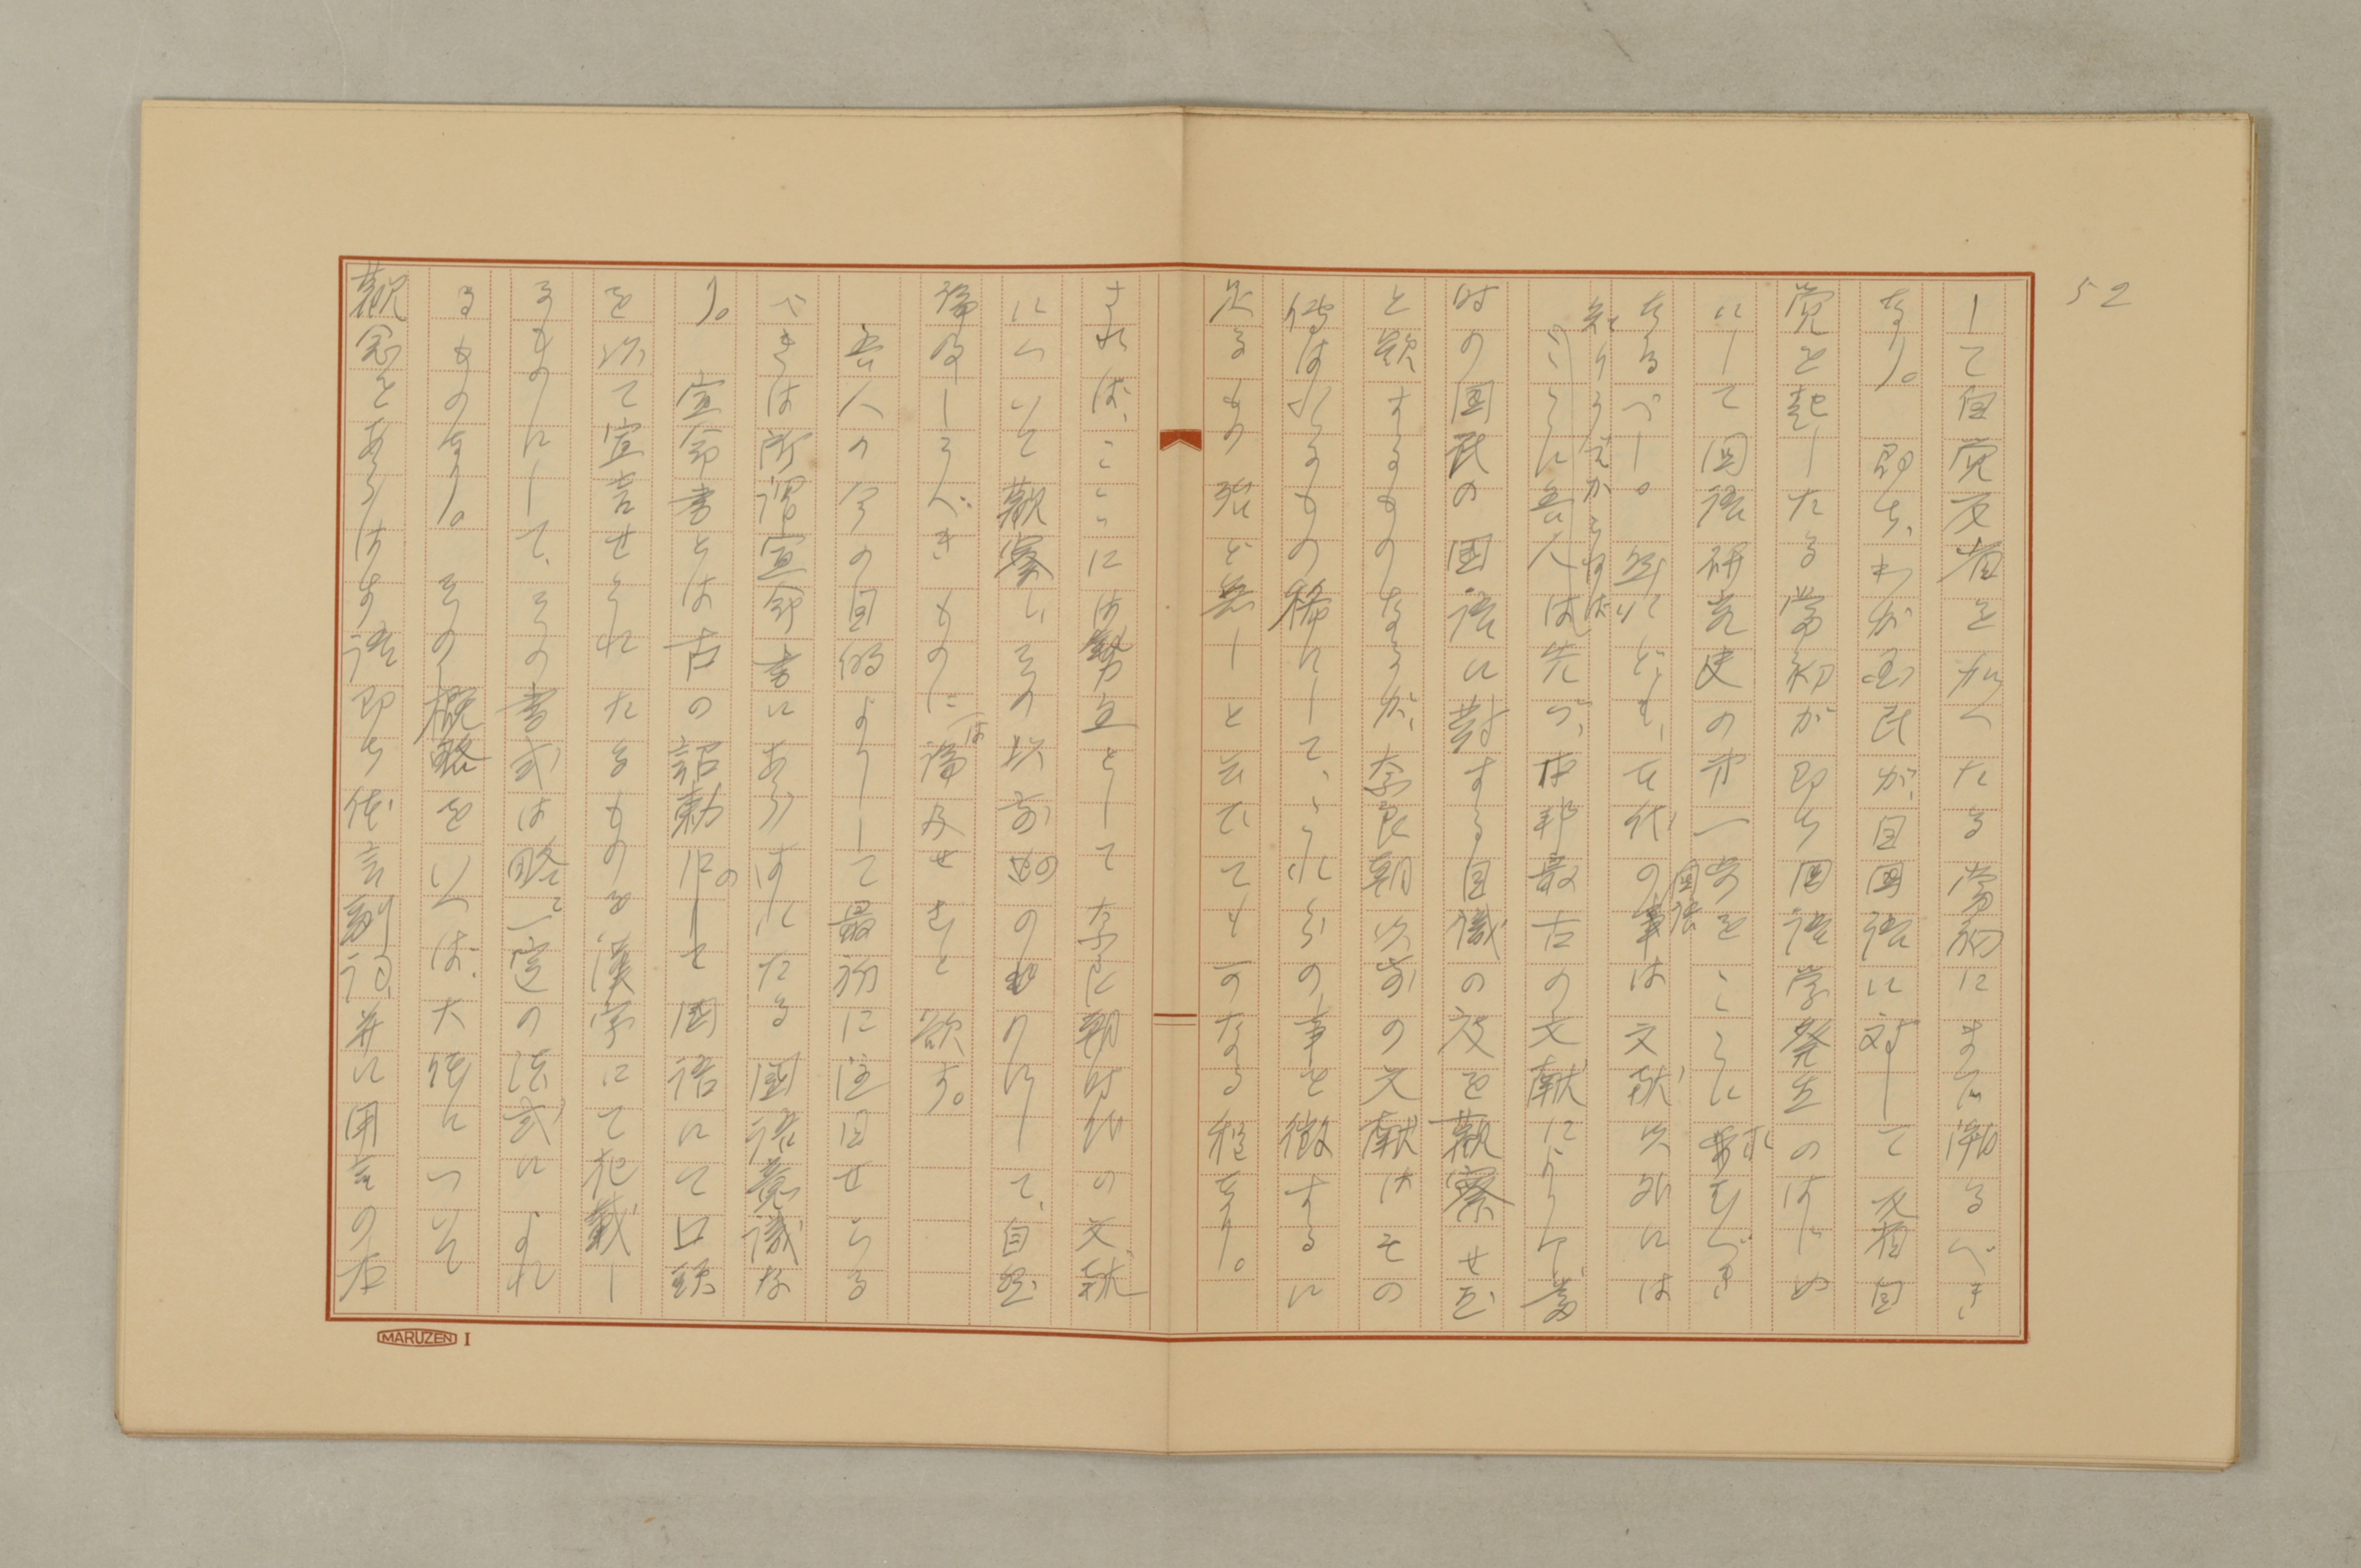 52
して自覚反省を加へたる当初にまで溯るべき
なり。即ち、わが国民が、自国語に対して反省自
覚を起したる当初が即ち国語学発生のはじめ
にして国語研究史の第一歩をここに求むべき
なるべし。然れども、古代の国語の事は文献以外には
知りうべからねば
吾人は先づ、本邦最古の文献によりて当
時の国民の国語に対する自識の度を観察せむ
と欲するものなるが、奈良朝以前の文献はその
伝はれるもの稀にして、これらの事を徴するに
足るもの殆ど無しと云ひても可なる程なり。
されば、ここには勢主として奈良朝時代の文献
についいて観察し、その以前のものにして、自然
論及しうべきものには論及せむと欲す。
吾人の今の目的よりして最初に注目せらる
べきは所謂宣命書にあらはれたる国語意識な
り。宣命書とは古の詔勅の国語にて口頭
を以て宣言せられたるものを漢字にて記載し
るものにして、その書式は略一定の法式によれ
るものなり。その概略をいへば、大体について
観念をあらはす語即ち体言副詞、并に用言の本
MARUZEN I